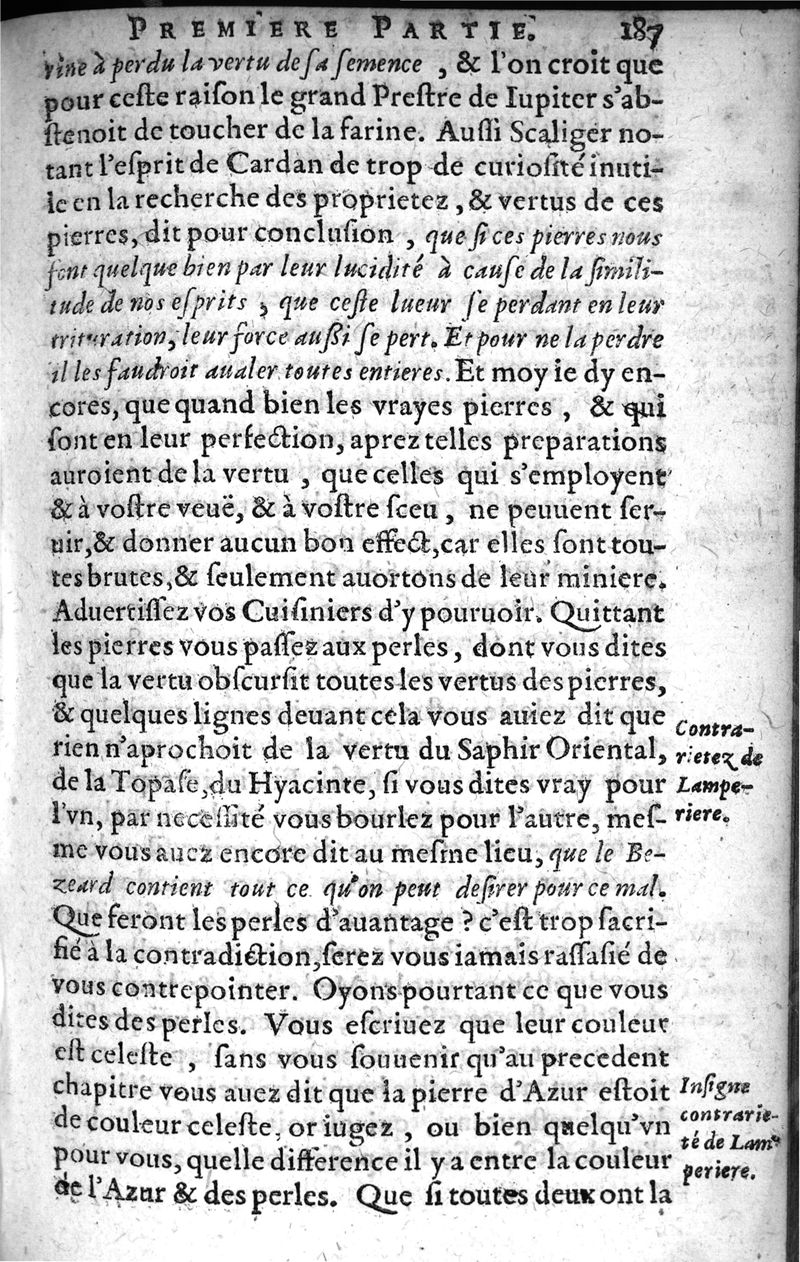 PREMIERE PARTIE. 187
rine à perdu la vertu de sa ſemence, & l'on croit que
pour ceſte raiſon le grand Preſtre de Iupiter s'ab-
ſtenoit de toucher de la farine. Auſſi Scaliger no-
tant l'eſprit de Cardan de trop de curioſité inuti-
le en la recherche des proprietez, & vertus de ces
pierres, dit pour concluſion, que ſi ces pierres nous
font quelque bien par leur lucidité à cauſe de la ſimili-
tude de nos eſprits, que ceſte lueur ſe perdant en leur
trituration, leur force auſſi ſe pert. Et pour ne la perdre
il les faudroit aualer toutes entieres. Et moy ie dy en-
cores, que quand bien les vrayes pierres, & qui
ſont en leur perfection, aprez telles preparations
auroient de la vertu, que celles qui s'employent
& à voſtre veuë, & à voſtre ſceu, ne peuuent ſer-
uir, & donner aucun bon effect, car elles ſont tou-
tes brutes, & ſeulement auortons de leur miniere.
Aduertiſſez vos Cuiſiniers d'y pouruoir. Quittant
les pierres vous paſſez aux perles, dont vous dites
que la vertu obſcurſit toutes les vertus des pierres,
& quelques lignes deuant cela vous auiez dit que
rien n'aprochoit de la vertu du Saphir Oriental,
de la Topaſe, du Hyacinte, ſi vous dites vray pour
l'vn, par neceſſité vous bourlez pour l'autre, meſ-
me vous auez encore dit au meſme lieu, que le Be-
zeard contient tout ce qu'on peut deſirer pour ce mal.
Que feront les perles d'auantage ? c'eſt trop ſacri-
fié à la contradiction, ſerez vous iamais raſſaſié de
vous contrepointer. Oyons pourtant ce que vous
dites des perles. Vous eſcriuez que leur couleur
eſt celeſte, ſans vous ſouuenir qu'au precedent
chapitre vous auez dit que la pierre d'Azur eſtoit
de couleur celeſte, or iugez, ou bien quelqu'vn
pour vous, quelle difference il y a entre la couleur
de l'Azur & des perles. Que ſi toutes deux ont la
Contra-
rietez de
Lampe-
riere.
Inſigne
contrarie-
té de Lam-
periere.